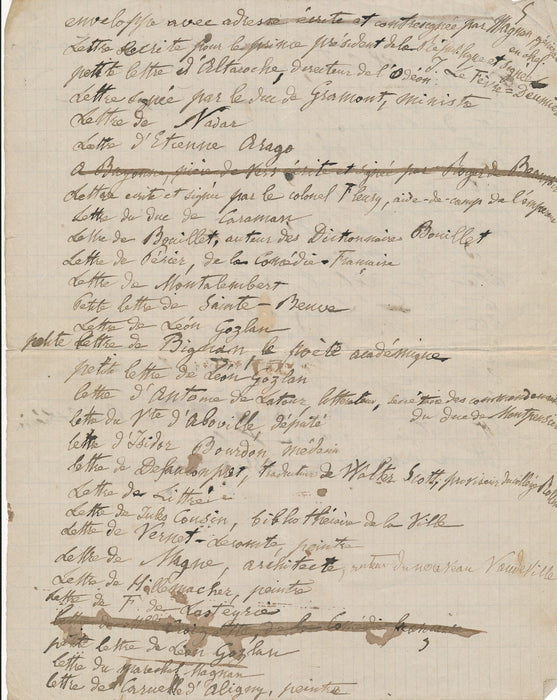 5
enveloppe avec adresse écrite et contresignée par Magnan, général en chef.
Lettre écrite pour le prince président de la République et
petite lettre d'Altaroche, directeur de l'Odéon.
Lettre signée par le duc de Gramont, ministre
Lettre de Nadar
Lettre d'Etienne Arago
A Bayonne, pièce de vers écrite et signée par Roger de Beauvoir
Lettre écrite et signée par le colonel Fleury, aide-de-camp de l'empereur
Lettre du duc de Caraman
Lettre de Bouillet, auteur des Dictionnaires Bouillet
Lettre de Périer, de la Comédie-Française
Lettre de Montalembert
Petite lettre de Sainte-Beuve
Lettre de Léon Gozlan
petite lettre de Bignan, le poète académique
petite lettre de Léon Gozlan
lettre d'Antoine de Latour littérateur, secrétaire des commandements
du duc de Montpensier
lettre du Vte d'Aboville, député
lettre d'Isidor Bourdon, médecin
lettre de Defauconpret, traducteur de Walter Scott, proviseur du collège Rollin
Lettre de Littré
Lettre de Jules Cousin, bibliothécaire de la Ville
Lettre de Vernet-Lecomte, peintre
Lettre de Magne, architecte, du nouveau Vaudeville
Lettre de Hillemacher, peintre
Lettre de F. de Lasteyrie
de la Comédie
petite lettre de Léon Gozlan
lettre du maréchal Magnan
lettre de Caruelle d'Aligny, peintre